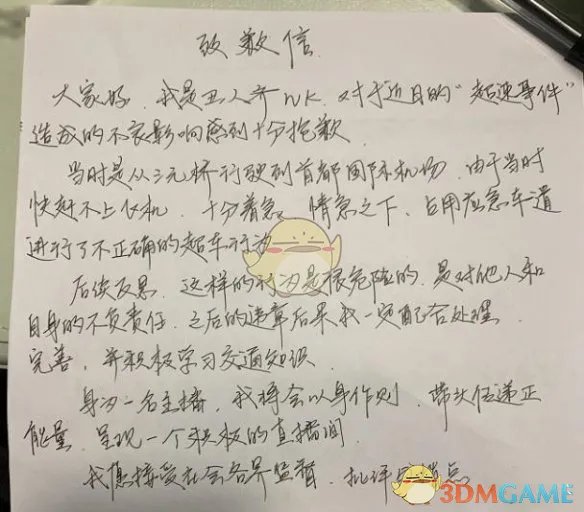 致歉信
大家好，我是五人齐NK，对于近日的"超速事件"
造成的不良影响感到十分抱歉
当时是从三元桥行驶到首都国际机场，由于当时
快赶不上飞机，十分着急。情急之下，占用应急车道
进行了不正确的超车行为
后续反思，这样的行为是很危险的，是对他人和
自身的不负责任，之后的违章后果我一定配合处理
完善，并积极学习交通知识
身为一名主播，我将会以身作则，带头传递正
能量，呈现一个积极的直播间
我愿接受社会各界监督，批评
3DMGAME